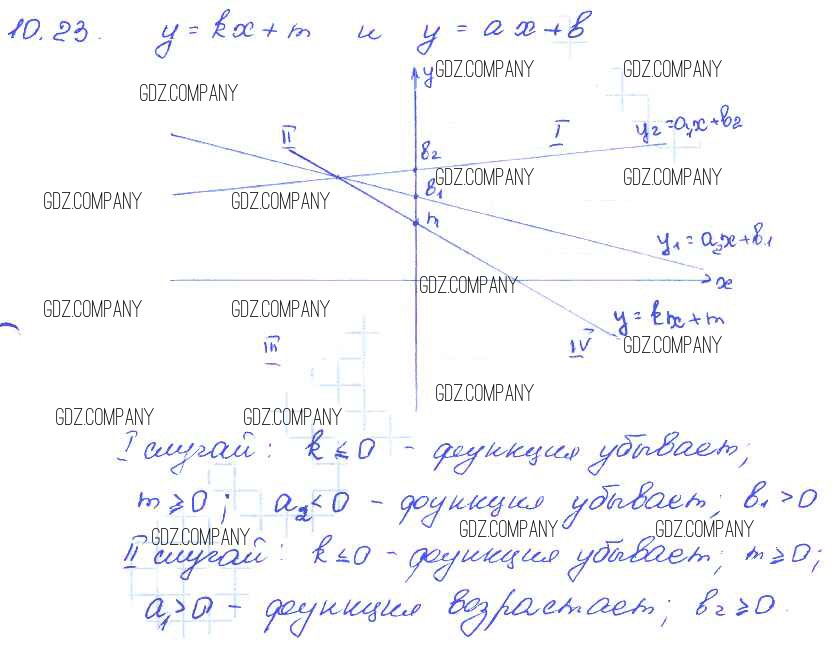 10.23. y = kx + m и y = ax + в
y
GDZ.COMPANY GDZ.COMPANY
GDZ.COMPANY
II I y₂ = a₁x + в₂
в₂
GDZ.COMPANY GDZ.COMPANY
в₁
GDZ.COMPANY GDZ.COMPANY
m
y₁ = a₂x + в₁
GDZ.COMPANY x
GDZ.COMPANY GDZ.COMPANY
y = kx + m
III IV GDZ.COMPANY
GDZ.COMPANY
GDZ.COMPANY GDZ.COMPANY
I случай: k ≤ 0 - функция убывает;
m ≥ 0; a₂ < 0 - функция убывает; в₁ > 0
GDZ.COMPANY GDZ.COMPANY GDZ.COMPANY
II случай: k ≤ 0 - функция убывает; m ≥ 0;
a₁ > 0 - функция возрастает; в₂ ≥ 0.